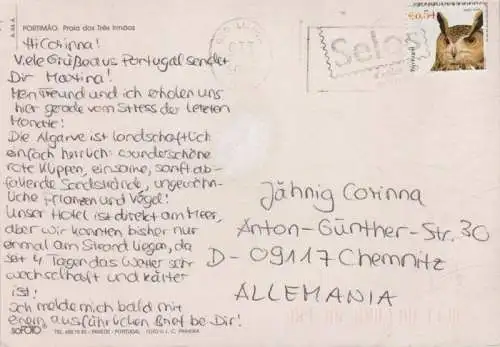 PORTIMÃO: Praia dos Três Irmãos
Hi Corinna!
Viele Grüße aus Portugal sendet
Dir Martina!
Mein Freund und ich erholen uns
hier gerade vom Stress der letzten
Monate!
Die Algarve ist landschaftlich
einfach herrlich: wunderschöne
rote Klippen, einsame, sanft ab-
fallende Sandstrände, ungewöhn-
liche Pflanzen und Vögel!
Unser Hotel ist direkt am Meer,
aber wir konnten bisher nur
einmal am Strand liegen, da
seit 4 Tagen das Wetter sehr
wechselhaft und kälter
ist!
Ich melde mich bald mit
einem ausführlichen Brief bei Dir!
SOFOTO
PORTUGAL
€0,54
Selos
Jähnig Corinna
Anton-Günther-Str. 30
D-09117 Chemnitz
ALLEMANIA